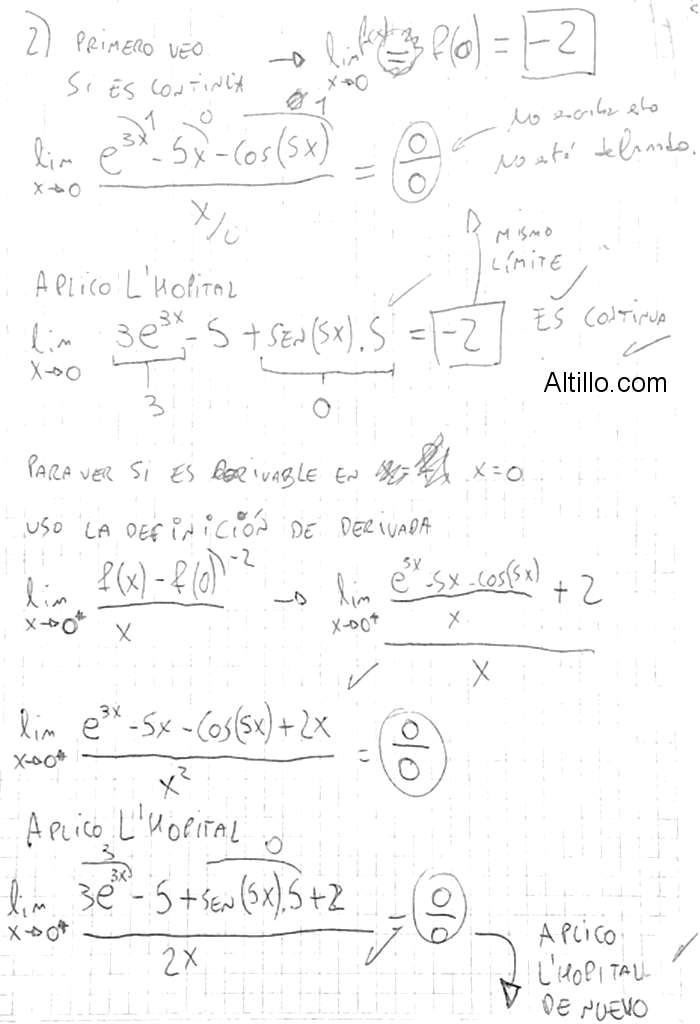 2) PRIMERO VEO → lim x→0 f(x) = f(0) = -2
SI ES CONTINUA
lim x→0 (e^3x - 5x - cos(5x)) / x = 0/0
1 0 1
0
No escribas esto
No está definido.
MISMO
LÍMITE
APLICO L'HOPITAL
lim x→0 3e^3x - 5 + SEN(5x).5 = -2 ES CONTINUA
3 0
Altillo.com
PARA VER SI ES DERIVABLE EN x=0
USO LA DEFINICIÓN DE DERIVADA
lim x→0 (f(x) - f(0)) / x → lim x→0+ ((e^3x - 5x - cos(5x)) / x + 2) / x
-2
lim x→0 (e^3x - 5x - cos(5x) + 2x) / x^2 = 0/0
APLICO L'HOPITAL
3 0
lim x→0 (3e^3x - 5 + SEN(5x).5 + 2) / 2x = 0/0
APLICO
L'HOPITAL
DE NUEVO